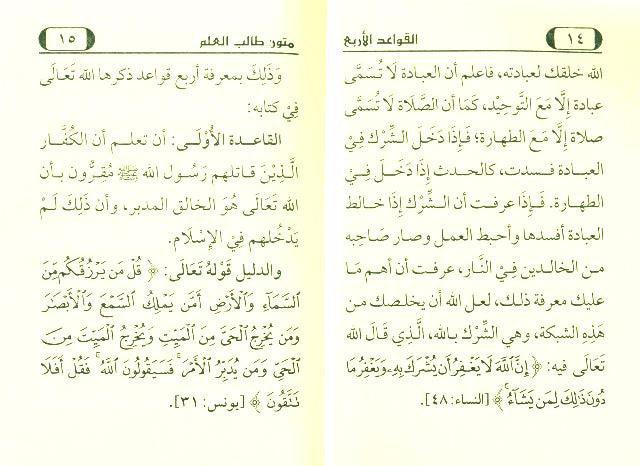 ١٤
القواعد الأربع
الله خلقك لعبادته، فاعلم أن العبادة لَا تُسَمَّى
عبادة إِلَّا مَعَ التَّوحِيْدِ، كَمَا أن الصَّلَاة لَا تُسَمَّى
صلاة إِلَّا مَعَ الطهارة؛ فَإِذَا دَخَلَ الشِّرْك فِيْ
العبادة فسدت، كالحدث إِذَا دَخَلَ فِيْ
الطهارة. فَإِذَا عرفت أن الشِّرْك إِذَا خالط
العبادة أفسدها وأحبط العمل وصار صَاحِبه
من الخالدين فِيْ النَّار، عرفت أن أهم مَا
عليك معرفة ذلك، لعل الله أن يخلصك من
هَذِهِ الشبكة، وهي الشِّرْك بالله، الَّذِي قَالَ الله
تَعَالَى فيه: ﴿ إِنَّ ٱللَّهَ لَا يَغْفِرُ أَن يُشْرَكَ بِهِۦ وَيَغْفِرُ مَا
دُونَ ذَٰلِكَ لِمَن يَشَآءُ ۚ ﴾ [النساء: ٤٨].
متون طالب العلم
١٥
وَذَلِكَ بمعرفة أربع قواعد ذكرها الله تَعَالَى
فِيْ كتابه:
القاعدة الأُوْلَى: أن تعلم أن الكُفَّار
الَّذِيْنَ قاتلهم رَسُول الله ﷺ مُقرُّون بأن
الله تَعَالَى هُوَ الخالق المدبر، وأن ذَلِكَ لَمْ
يَدْخُلهم فِيْ الإِسْلَام.
والدليل قَوْلهُ تَعَالَى: ﴿ قُلْ مَن يَرْزُقُكُم مِّنَ
ٱلسَّمَآءِ وَٱلْأَرْضِ أَمَّن يَمْلِكُ ٱلسَّمْعَ وَٱلْأَبْصَٰرَ
وَمَن يُخْرِجُ ٱلْحَىَّ مِنَ ٱلْمَيِّتِ وَيُخْرِجُ ٱلْمَيِّتَ مِنَ
ٱلْحَىِّ وَمَن يُدَبِّرُ ٱلْأَمْرَ ۚ فَسَيَقُولُونَ ٱللَّهُ ۚ فَقُلْ أَفَلَا
تَتَّقُونَ ﴾ [يونس: ٣١].